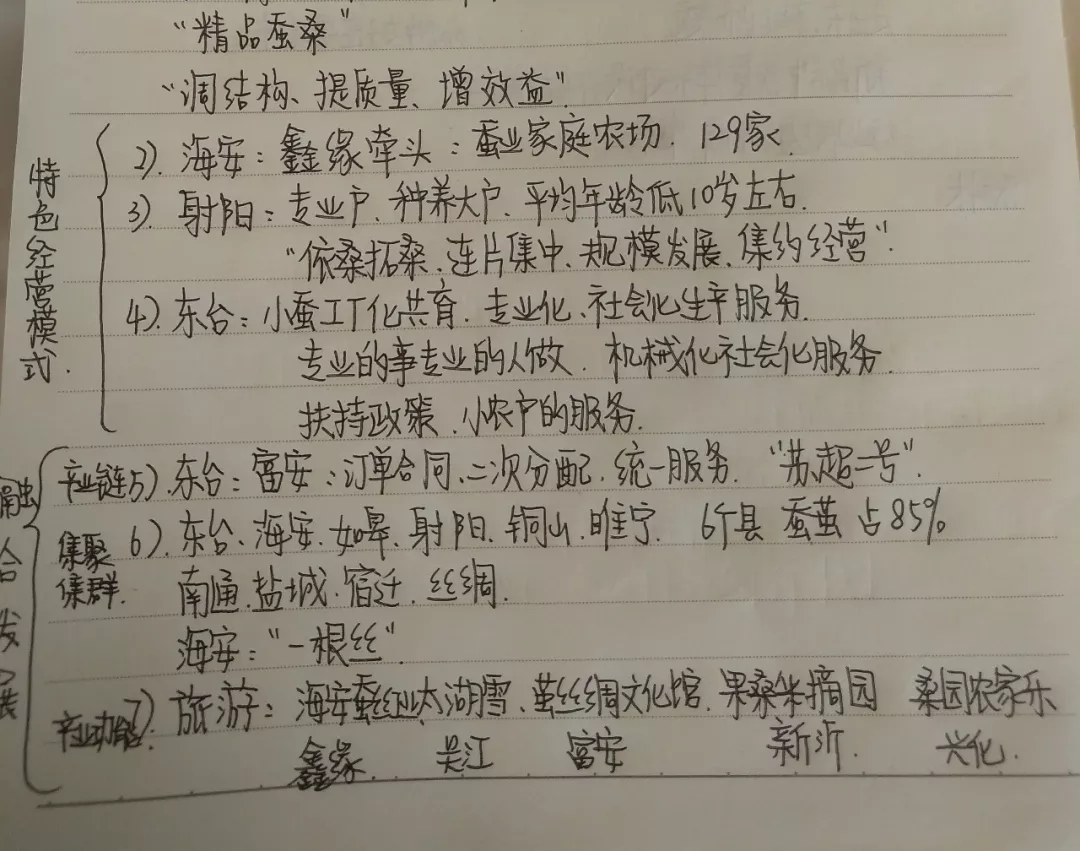 "精品蚕桑"
"调结构、提质量、增效益"
特色经营模式.
2). 海安：鑫缘牵头：蚕业家庭农场. 129家.
3). 射阳：专业户、种养大户、平均年龄低10岁左右.
"依桑拓桑、连片集中、规模发展、集约经营".
4). 东台：小蚕工厂化共育. 专业化、社会化生产服务.
专业的事专业的人做. 机械化社会化服务.
扶持政策、小农户的服务.
融合发展
产业链 5). 东台：富安：订单合同、二次分配、统一服务. "苏超二号".
集聚集群. 6). 东台、海安、如皋、射阳、铜山、睢宁. 6个县 蚕茧占85%
南通、盐城、宿迁、丝绸.
海安："一根丝".
产业功能 7). 旅游：海安蚕丝 太湖雪、茧丝绸文化馆. 果桑采摘园 桑园农家乐
鑫缘. 吴江 富安 新沂. 兴化.